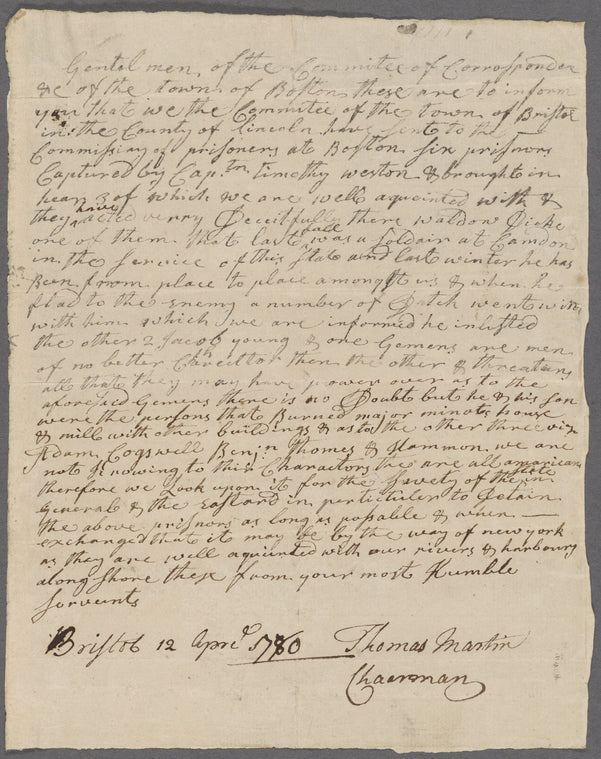 Gentel men, of the Commitee of Corresponden
&c of the town of Boston these are to inform
you that we the Commitee of the town of Bristol
in the County of Lincoln have sent to the
Commissary of prisoners at Boston six prisnors
Captured by Capt.n timothy weston & brought in
hear 3 of which we are well aquinted with &
they have acted verry Deceitfully there waldon Dicke
one of them that last fall was a Soldair at Camdon
in the service of this state and last winter he has
Been from place to place amongst us & when he
flad to the Enemy a number of Datch went with
with him which we are informed he inlisted
the other 2 Jacob young & one Gemens are men
of no better Charector then the other & threatens
all that they may have power over as to the
aforesaid Gemens there is no Doubt but he & his son
were the persons that Burned major minots house
& mill with other buildings & as to the other three viz
Adam, Cogswell Benj.n Thomes & Hammon we are
not knowing to this Charactors the are all american
therefore we Look upon it for the Savety of the state in
General & the Eastard in perticuler to Detain
the above prisnors as long as possable & when
exchanged that it may be by the way of new york
as they are well aquinted with our rivers & harbours
along shore these from your most Humble
servents
Bristol 12 Apre.l 1780 Thomas Martin
Chaerman